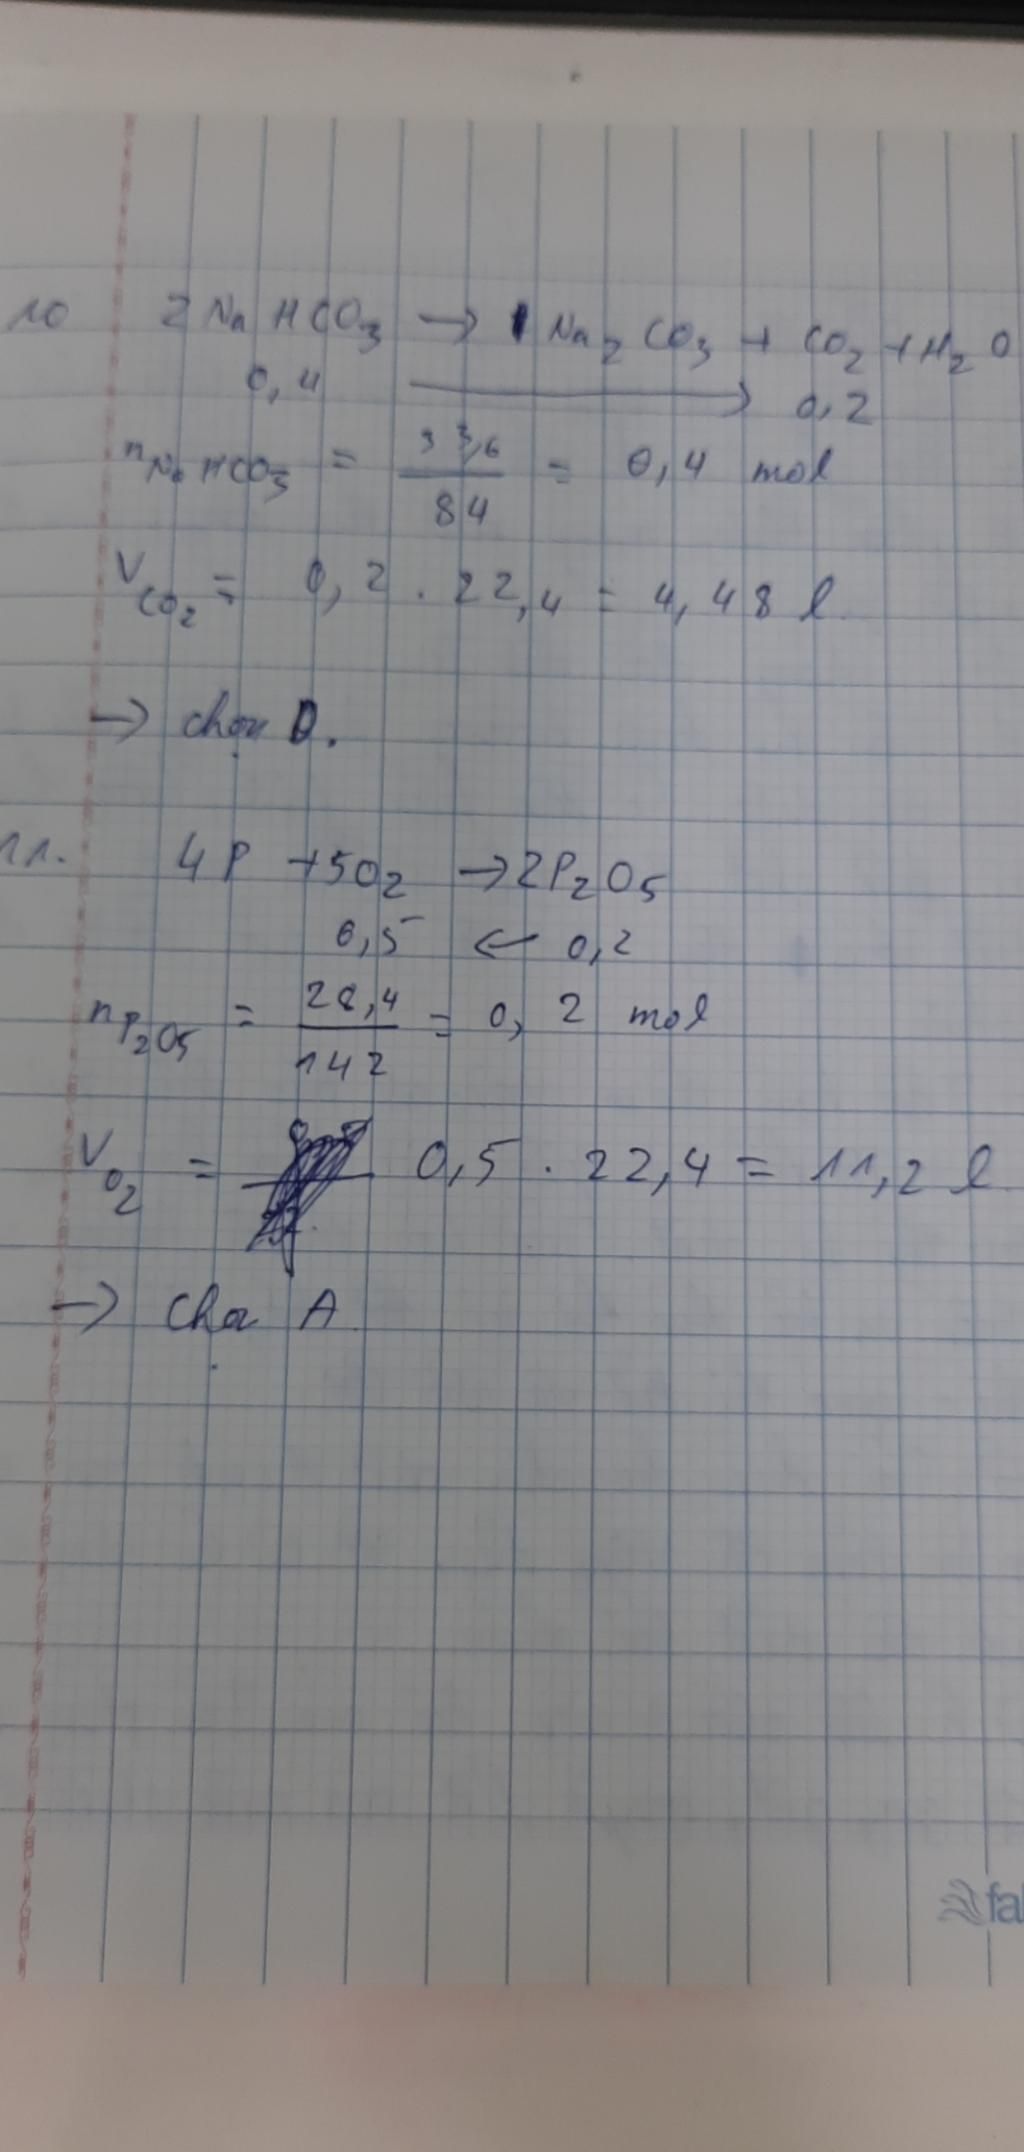 10 2NaHCO3 → 1Na2CO3 + CO2 + H2O
0,4 → 0,2
nNaHCO3 = 33,6/84 = 0,4 mol
VCO2 = 0,2 . 22,4 = 4,48 l
→ chọn D.
11. 4P + 5O2 → 2P2O5
0,5 ← 0,2
nP2O5 = 28,4/142 = 0,2 mol
VO2 = 0,5 . 22,4 = 11,2 l
→ Chọn A